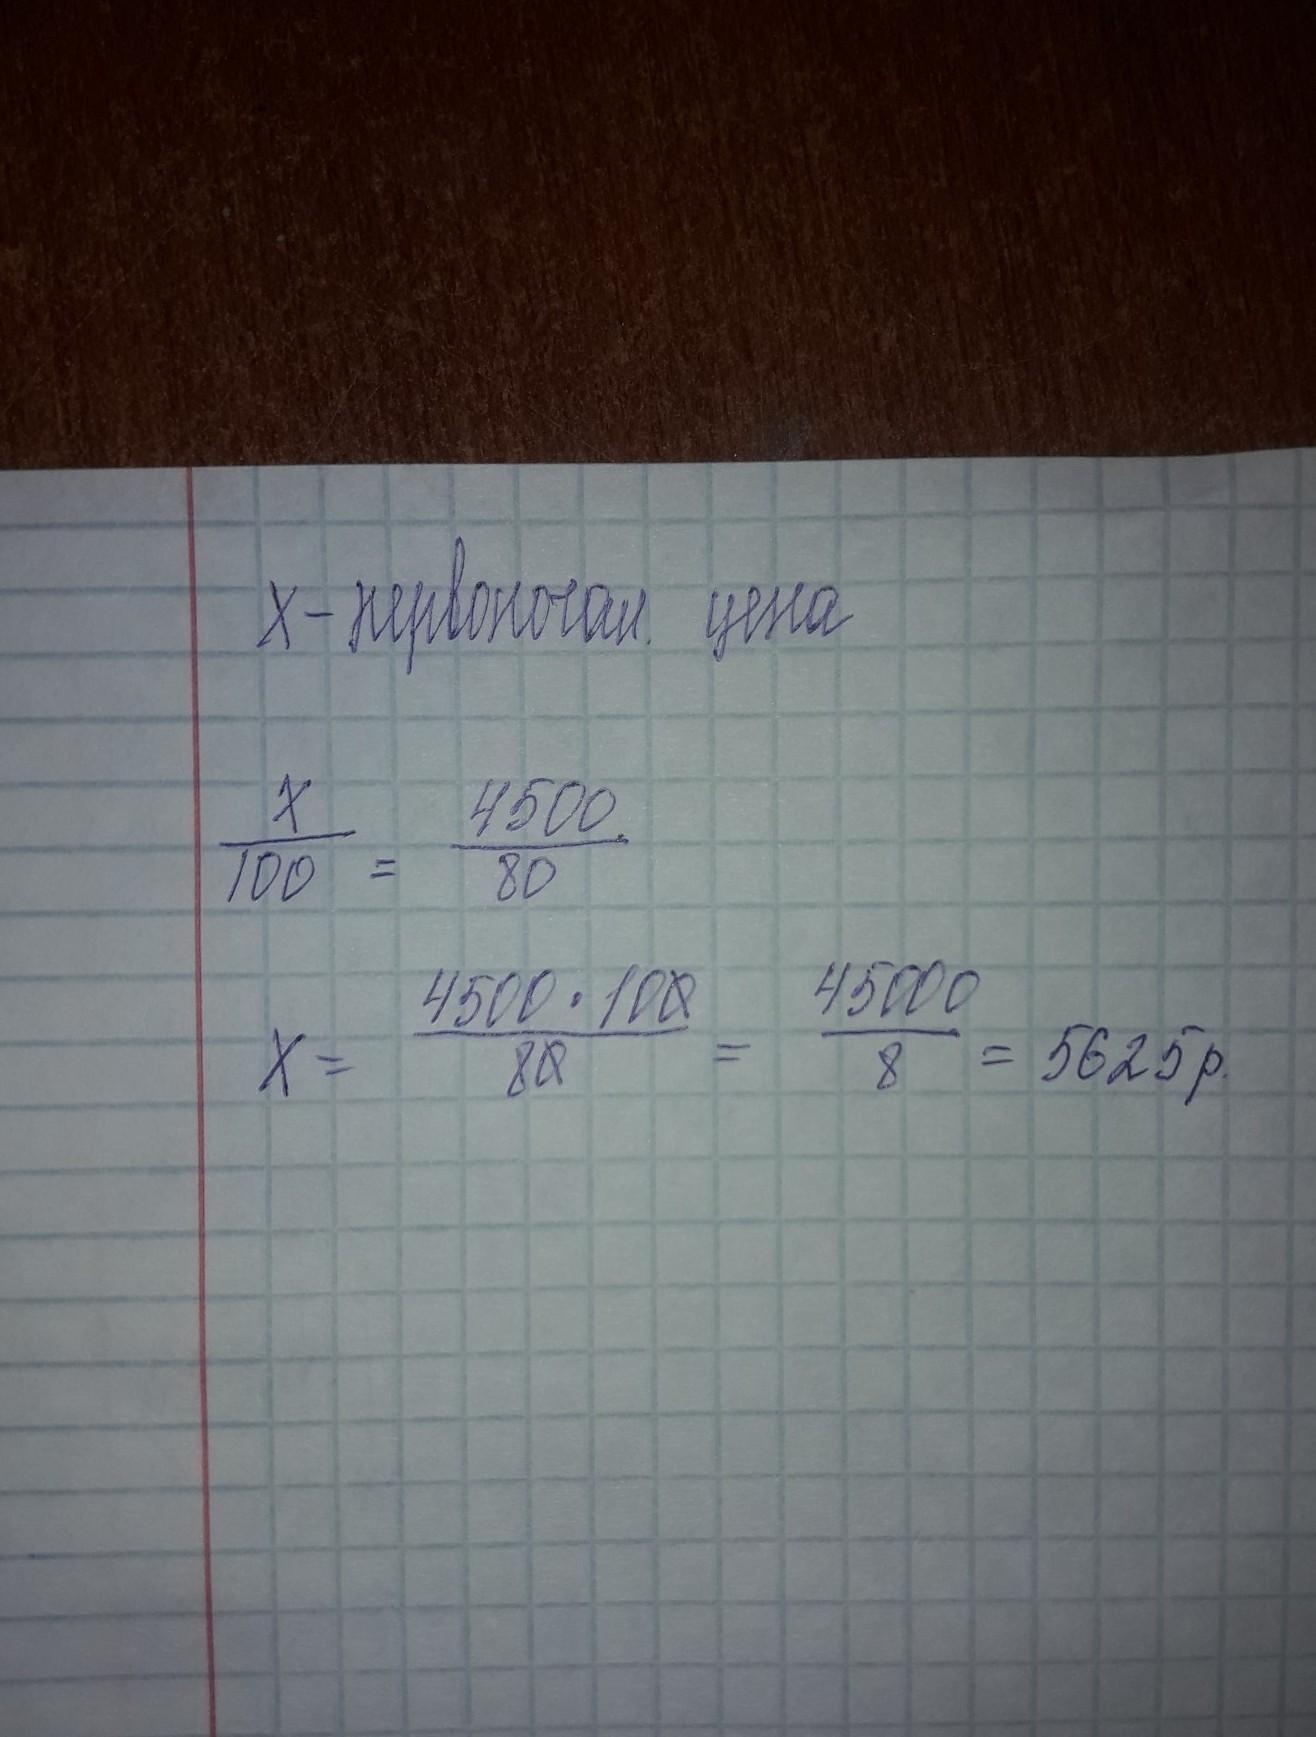 x - первоночал. цена
x/100 = 4500/80
x = 4500 · 100/80 = 45000/8 = 5625 р.